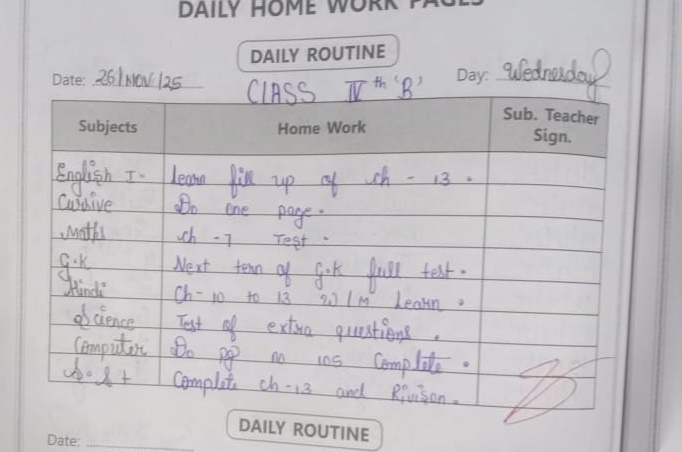 DAILY HOME WORK PAGES
DAILY ROUTINE
Date: 26/NOV/25 Day: Wednesday
CLASS IVth 'B'
Subjects Home Work Sub. Teacher Sign.
English I- Learn fill up of ch - 13.
Cursive Do one page.
Maths ch -7 Test.
G.K Next term of G.K full test.
Hindi Ch- 10 to 13 W/M Learn.
Science Test of extra questions.
Computer Do pg no 105 Complete.
S.St Complete ch-13 and Rivison.
DAILY ROUTINE
Date: